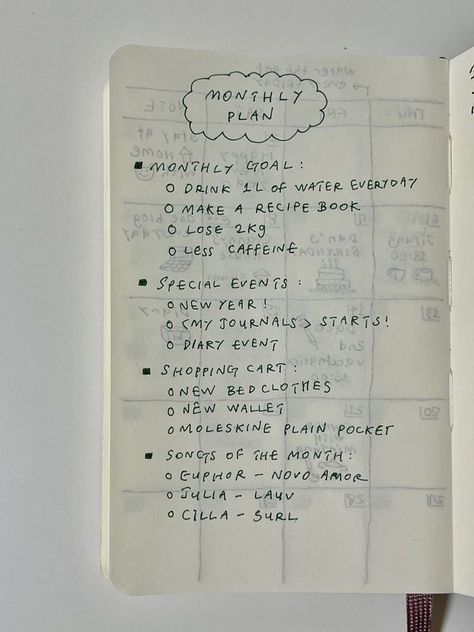 MONTHLY
PLAN
■ MONTHLY GOAL:
○ DRINK 1L OF WATER EVERYDAY
○ MAKE A RECIPE BOOK
○ LOSE 2Kg
○ LESS CAFFEINE
■ SPECIAL EVENTS:
○ NEW YEAR!
○ <MY JOURNALS> STARTS!
○ DIARY EVENT
■ SHOPPING CART:
○ NEW BEDCLOTHES
○ NEW WALLET
○ MOLESKINE PLAIN POCKET
■ SONGS OF THE MONTH:
○ EUPHOR – NOVO AMOR
○ JULIA – LAUV
○ CILLA – SURL